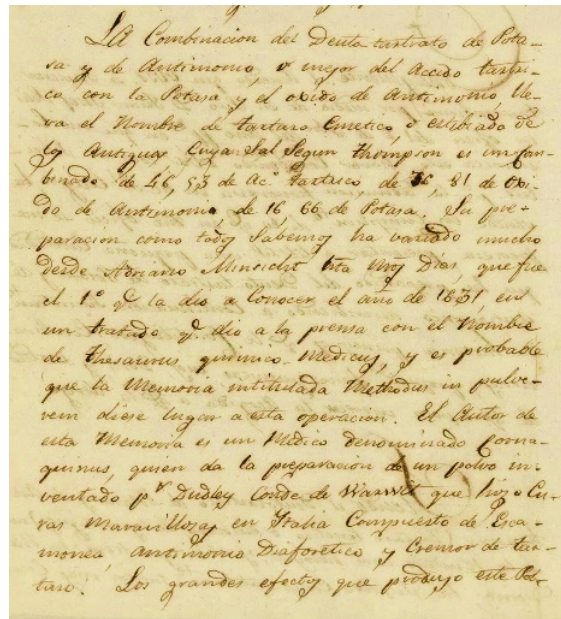 LA Combinacion del Deuto tartrato de Pota-
sa y de Antimonio, o mejor del Accido tartri-
co con la Potasa y el oxido de Antimonio, lle-
va el Nombre de tartaro Emetico, o estibiado de
los Antiguos Cuya Sal Segun Thompson es un Com-
binado de 46, 53 de Acº tartrico, de 36, 81 de Oxi-
do de Antimonio, de 16, 66 de Potasa. Su pre-
paracion como todos Sabemos ha variado mucho
desde Adriano Minsicht hta Nros Dias, que fue
el 1º q. la dio a Conocer el año de 1631, en
un tratado q. dio a la prensa con el Nombre
de Thesaurus quimico-Medicus, y es probable
que la Memoria intitulada Methodus in pulve-
rem diese lugar a esta operacion. El Autor de
esta Memoria es un Medico denominado Corna-
quinus, quien da la preparacion de un polvo in-
ventado pr Dudley Conde de Warwit que hizo Cu-
ras Maravillosas en Italia Compuesto de Esca-
monea, antimonio Diaforetico y Cremor de tar-
taro. Los grandes efectos que produjo este Pol-